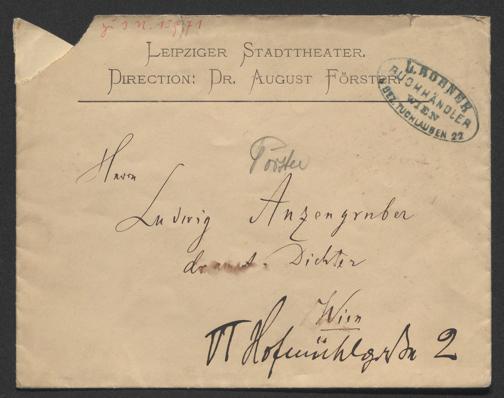 zu I N. 159971
LEIPZIGER STADTTHEATER.
DIRECTION: DR. AUGUST FÖRSTER.
L. ROSNER
BUCHHÄNDLER
WIEN
BEZ. TUCHLAUBEN 22
Förster
Herrn
Ludwig Anzengruber
dramat. Dichter
Wien
VI Hofmühlgasse 2